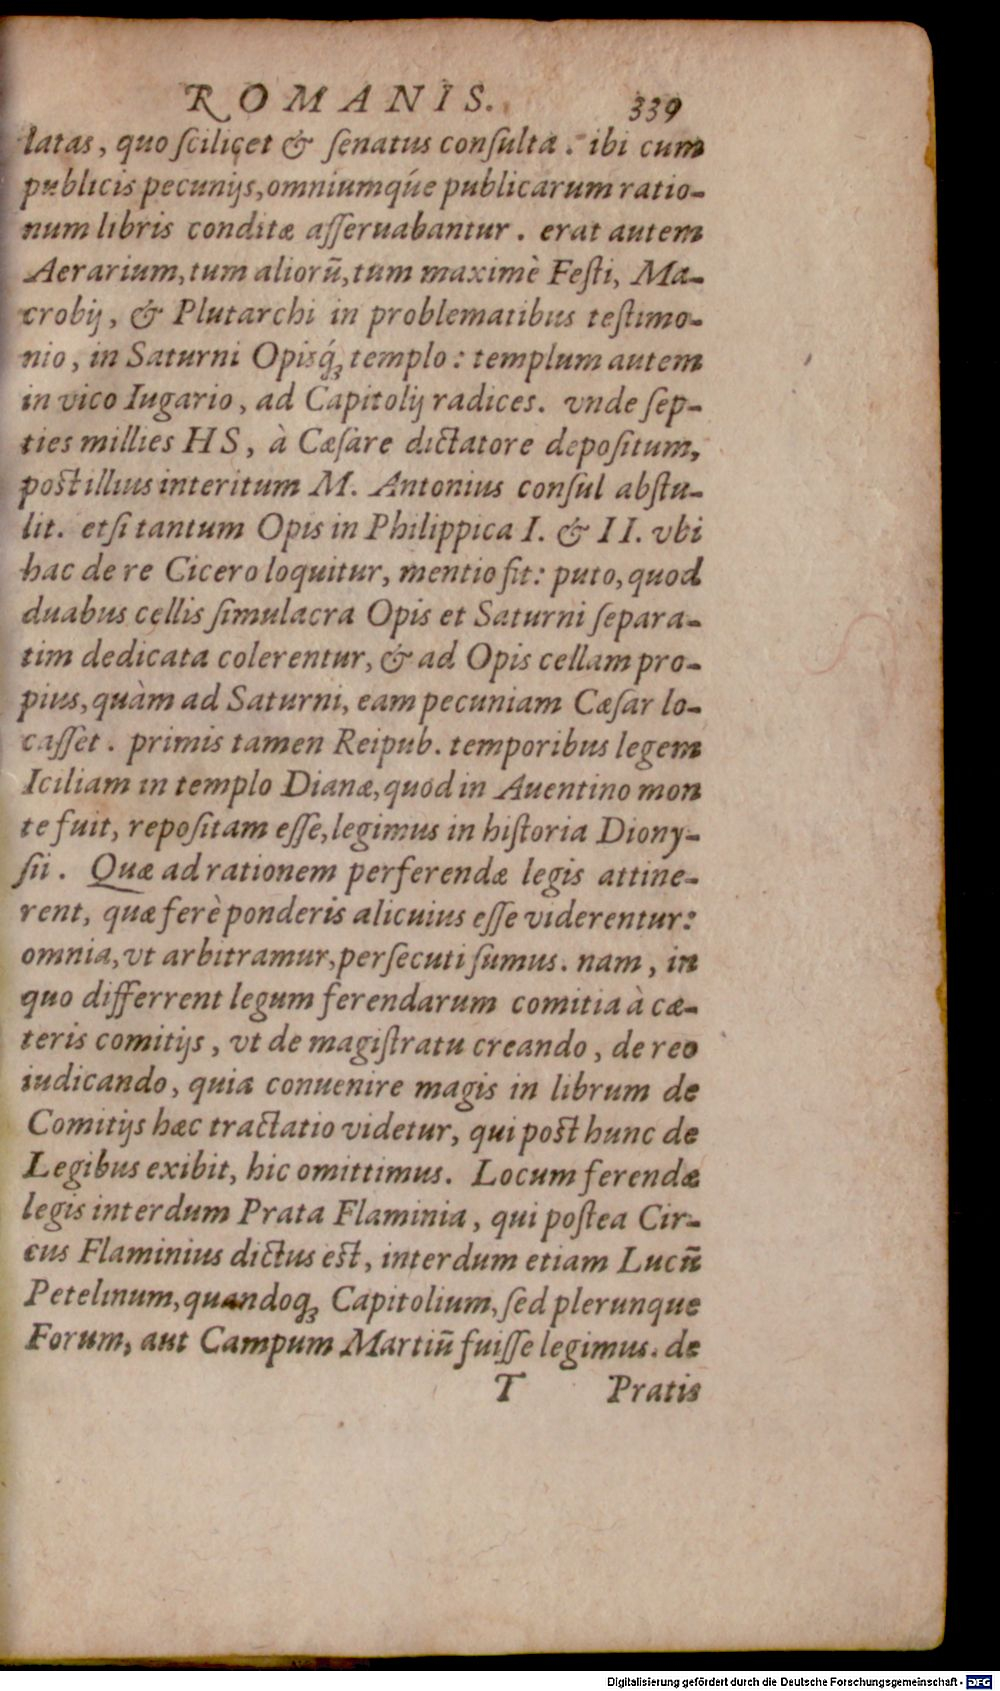 ROMANIS. 339
latas, quo ſcilicet & ſenatus conſulta. ibi cum
publicis pecunijs, omniumqúe publicarum ratio-
num libris conditæ aſſeruabantur. erat autem
Aerarium, tum aliorū, tum maximè Feſti, Ma-
crobij, & Plutarchi in problematibus teſtimo-
nio, in Saturni Opisq́ꝫ templo: templum autem
in vico Iugario, ad Capitolij radices. vnde ſep-
ties millies HS, à Cæſare dictatore depoſitum,
poſt illius interitum M. Antonius conſul abſtu-
lit. etſi tantum Opis in Philippica I. & II. vbi
hac de re Cicero loquitur, mentio fit: puto, quod
duabus cellis ſimulacra Opis et Saturni ſepara-
tim dedicata colerentur, & ad Opis cellam pro-
pius, quàm ad Saturni, eam pecuniam Cæſar lo-
caſſet. primis tamen Reipub. temporibus legem
Iciliam in templo Dianæ, quod in Auentino mon
te fuit, repoſitam eſſe, legimus in hiſtoria Diony-
ſii. Quæ ad rationem perferendæ legis attine-
rent, quæ ferè ponderis alicuius eſſe viderentur:
omnia, vt arbitramur, perſecuti ſumus. nam, in
quo differrent legum ferendarum comitia à cæ-
teris comitijs, vt de magiſtratu creando, de reo
iudicando, quia conuenire magis in librum de
Comitijs hæc tractatio videtur, qui poſt hunc de
Legibus exibit, hic omittimus. Locum ferendæ
legis interdum Prata Flaminia, qui poſtea Cir-
cus Flaminius dictus eſt, interdum etiam Lucū
Petelinum, quandoqꝫ Capitolium, ſed plerunque
Forum, aut Campum Martiū fuiſſe legimus. de
T Pratis
Digitalisierung gefördert durch die Deutsche Forschungsgemeinschaft - DFG